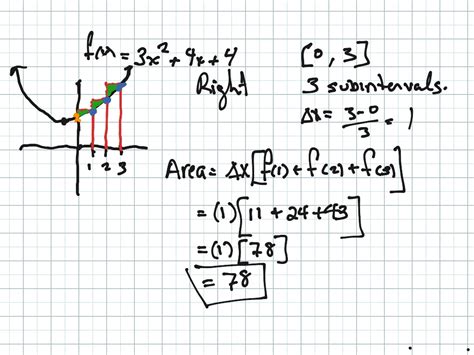 f(x) = 3x² + 4x + 4 [0, 3]
Right 3 subintervals.
Δx = (3-0)/3 = 1
1 2 3
Area = Δx[f(1) + f(2) + f(3)]
= (1)[11 + 24 + 43]
= (1)[78]
= 78